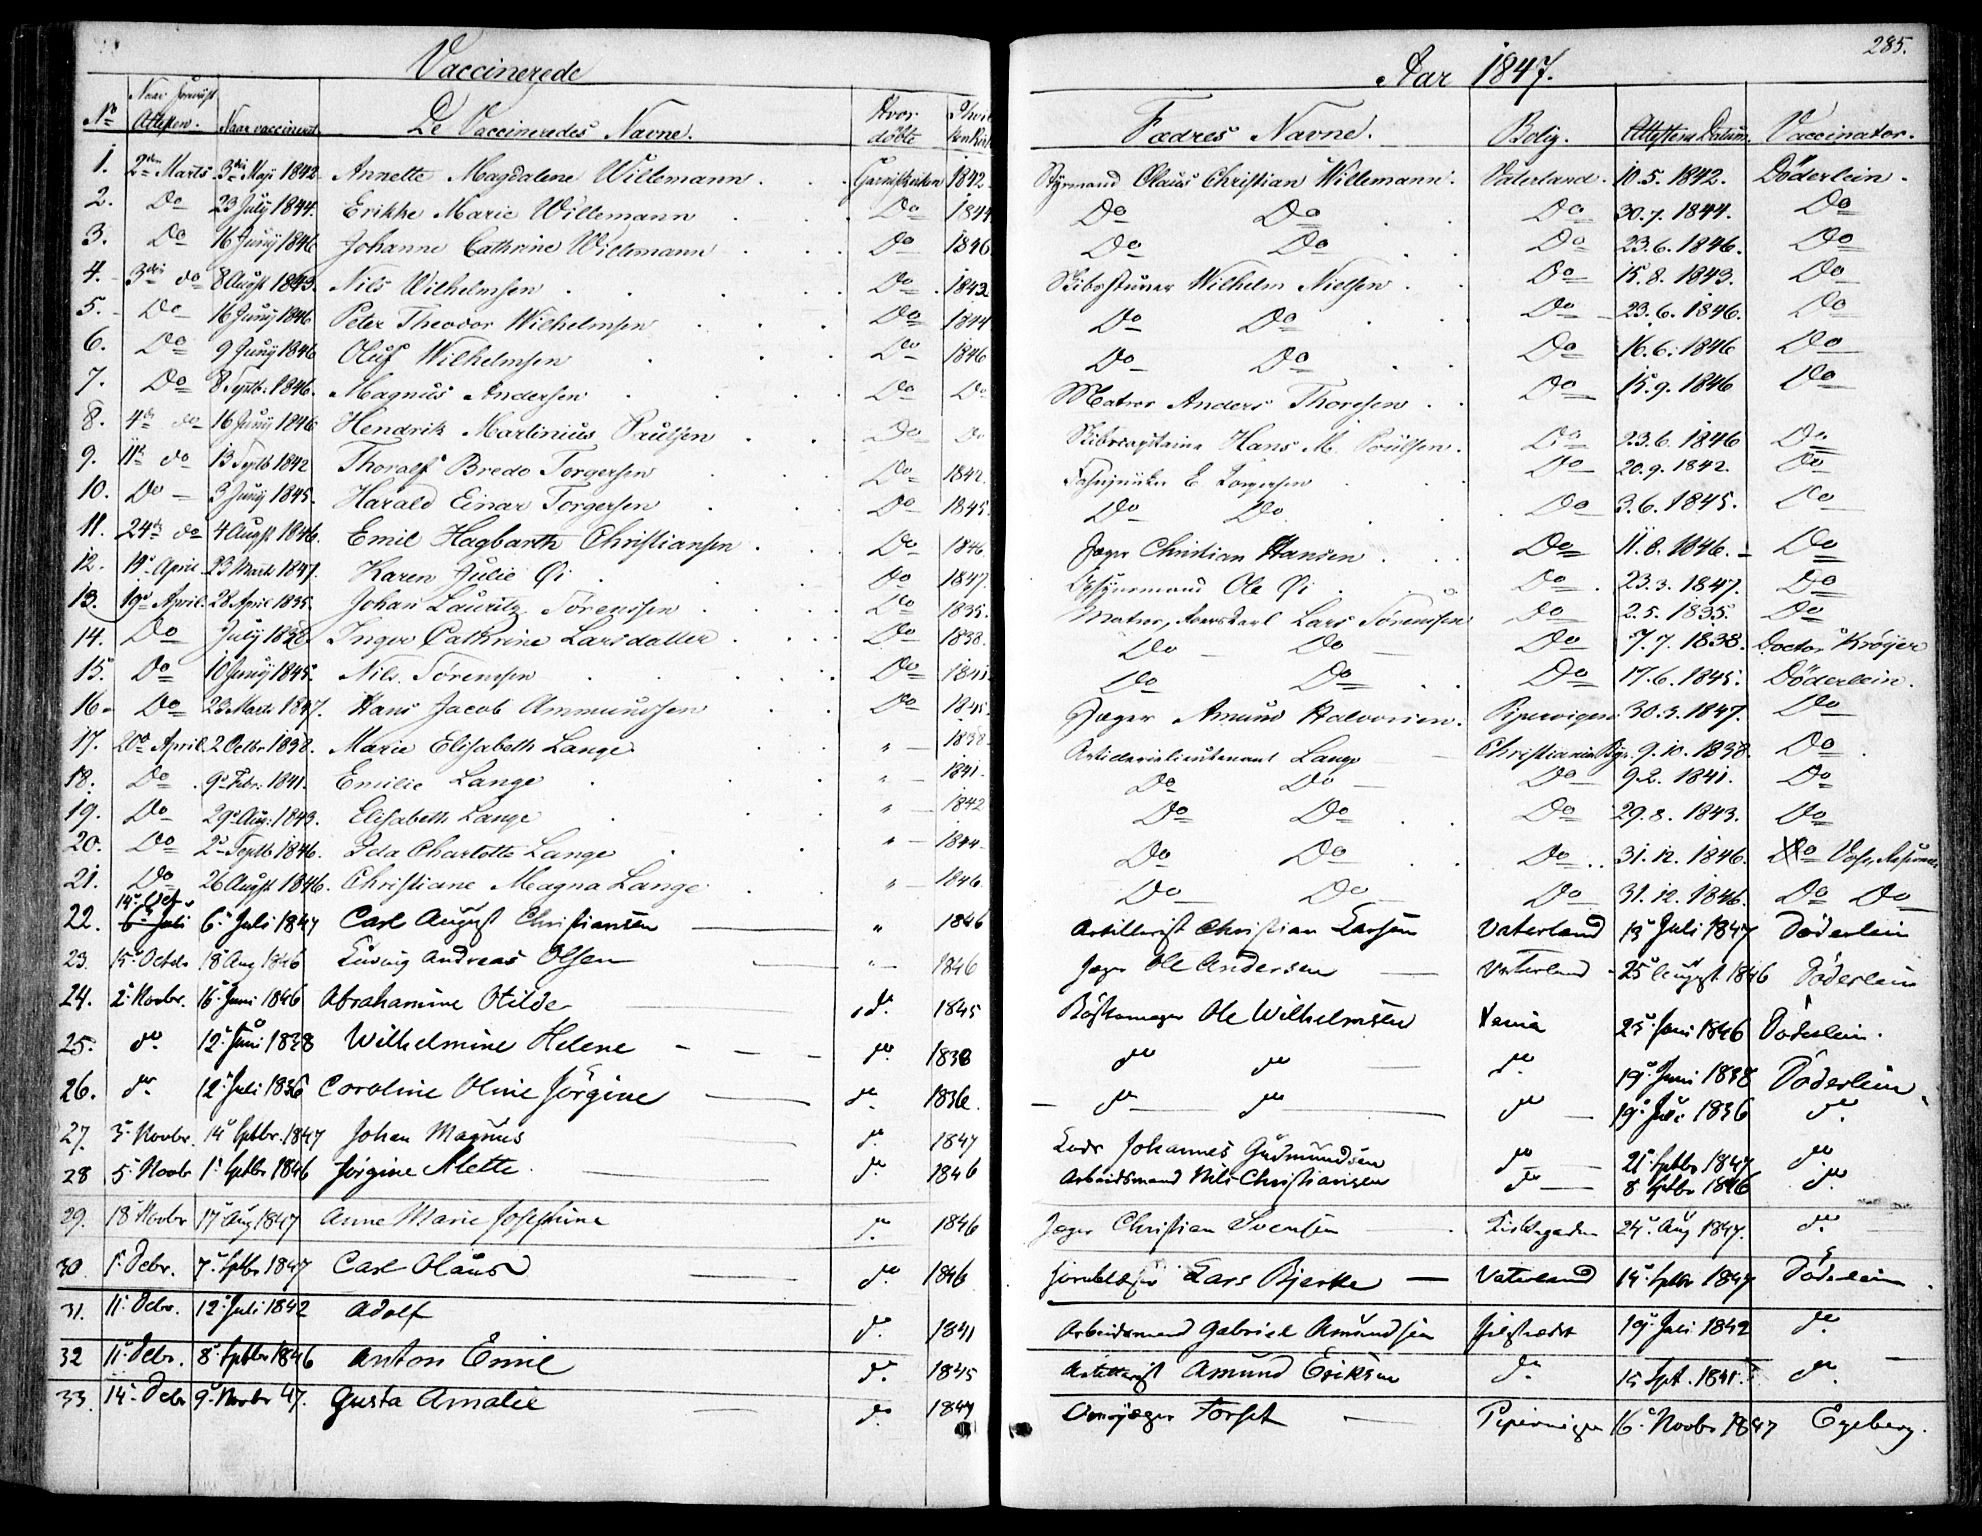 285.
Vaccinerede Aar 1847.
No Naar Attesten. Naar vaccineret De Vaccineredes Navne. Hvor döbte Fædres Navne. Bolig. Attestens Datum. Vaccinator.
1. 2den Marts 3die Maji 1842 Annette Magdalene Willemann Garnis.kirken 1842 Styrmand Claus Christian Willemann. Vaterland. 10.5.1842. Döderlein.
2. Do 23 July 1844. Erikke Marie Willemann Do 1844 Do Do Do 30.7.1844. Do
3. Do 16 Junij 1846 Johanne Cathrine Willemann Do 1846 Do Do Do 23.6.1846. Do
4. 3die do 8 Augst 1843. Nils Wilhelmsen Do 1842 Wilhelm Nielsen Do 15.8.1843. Do
5. Do 16 Junij 1846 Peter Theodor Wilhelmsen Do 1844 Do Do Do 23.6.1846. Do
6. Do 9 Junij 1846 Oluf Wilhelmsen Do 1846 Do Do Do 16.6.1846 Do
7. Do 8 Septb: 1846. Magnus Andersen Do Do Matros Anders Thoresen Do 15.9.1846 Do
8. 4de do 16 Junij 1846 Hendrik Martinius Paulsen Do Do Skibscaptaine Hans M. Poulsen. Do 23.6.1846 Do
9. 11te do 13 Septb 1842 Thoralf Bredo Torgersen Do 1842. E. Torgersen Do 20.9.1842. Do
10. Do 3 Junij 1845. Harald Einar Torgersen Do 1845 Do Do Do 3.6.1845. Do
11. 24de do 4 Augst 1846. Emil Hagbarth Christiansen Do 1846 Jæger Christian Hansen Do 11.8.1846. Do
12. 19de April 23 Marts 1847. Karen Julie Øi Do 1847. Opsynsmand Ole Øi Do 23.3.1847. Do
13. 19de April. 28 April 1835. Johan Lauritz Sørenssen Do 1835. Matros, Lars Sørenssen Do 2.5.1835. Do
14. Do July 1838. Inger Cathrine Larsdatter Do 1838. Do Do Do 7.7.1838. Doctor Krøyer
15. Do 10 Junij 1845. Nils Sørensen Do 1841 Do Do Do 17.6.1845. Döderlein.
16. Do 23 Marts 1847. Hans Jacob Ammundsen Do 1845. Jæger Amund Halvorsen. Pipervigen 30.3.1847. Do
17. 20de April. 2 Octbr 1838. Marie Elisabeth Lange " 1838 Artillerielieutenant Lange Christiania 9.10.1838 Do
18. Do 9de Febr: 1841. Emilie Lange " 1841. Do Do Do 9.2.1841. Do
19. Do 29de Aug: 1843. Elisabeth Lange " 1842 Do Do Do 29.8.1843. Do
20. Do 2den Septb 1846. Ida Charlotte Lange " 1844 Do Do Do 31.12.1846. Do
21. Do 26 Augst 1846. Christiane Magna Lange " 1846. Do Do Do 31.12.1846. Do Do
14. Oct
22. 6. Juli 6. Juli 1847 Carl August Christiansen " 1846 Artillerist Christian Larsen Vaterland 13. Juli 1847 Döderlein
23. 15. Octob 18 Aug 1846 Ludvig Andreas Olsen " 1846 Jæger Ole Andersen Vaterland 25 August 1846 Döderlein
24. 2. Novbr. 16. Juni 1846 Abrahamine Otilde do. 1845 Ole Wilhelmsen 23. Juni 1846 Döderlein.
25. do. 12. Juni 1838 Wilhelmine Helene do. 1838 do do do. 19. Juni 1838 Döderlein
26. do. 12. Juli 1836 Caroline Oline Jörgine do. 1836. do do do 19. Juli 1836 do.
27. 3. Novbr. 14. Septbr. 1847 Johan Magnus do. 1847 Johannes Gudmundsen do 21. Septbr 1847 do
28 5. Novbr 1. Septbr 1846 Jørgine Alette do. 1846 Arbeidsmand Nils Christiansen do 8 Septbr 1846 do.
29. 18 Novbr 17. Aug 1847 Anne Marie Josephine do. 1846 Jæger Christian Svensen 24. Aug 1847. do.
30. 1. Debr. 7. Septbr 1847 Carl Olaus do. 1846 Lars Bjerke Vaterland 14. Septbr 1847 Döderlein
31. 11. Debr. 12. Juli 1842 Adolf do. 1841 Arbeidsmand Gabriel Amundsen 19. Juli 1842 do.
32 11. Debr. 8. Septbr 1846 Anton Emil do. 1845 Artillerist Amund Eriksen do. 15 Spt. do.
33. 14. Debr 9. Novbr 47. Gusta Amalie do. 1847 Forset Pipervigen 16. Novbr 1847 Egeberg.